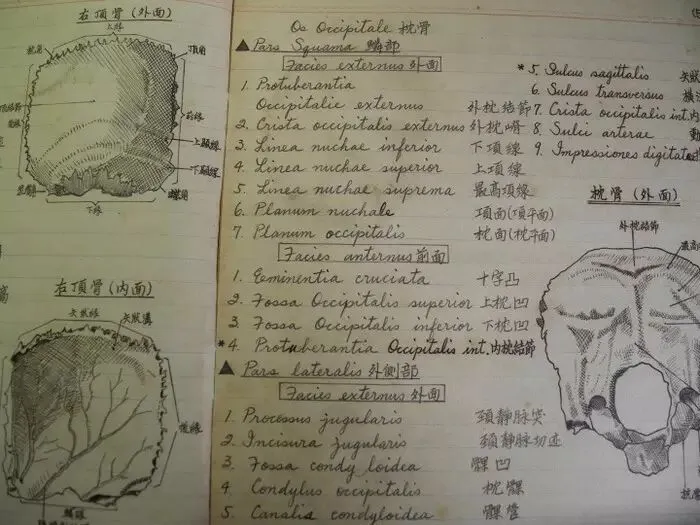 右頂骨 (外面)
上緣
頂角
前緣
上顳線
下顳線
下緣
右頂骨 (内面)
矢狀緣
矢狀溝
後緣
Os Occipitale 枕骨
▲ Pars Squama 鱗部
Facies externus 外面
1. Protuberantia
Occipitalie externus 外枕結節
2. Crista occipitalis externus 外枕嵴
3. Linea nuchae inferior 下項線
4. Linea nuchae superior 上項線
5. Linea nuchae suprema 最高項線
6. Planum nuchale 項面(項平面)
7. Planum occipitalis 枕面(枕平面)
Facies anternus 前面
1. Eminentia cruciata 十字凸
2. Fossa Occipitalis superior 上枕凹
3. Fossa Occipitalis inferior 下枕凹
*4. Protuberantia Occipitalis int. 内枕結節
▲ Pars lateralis 外側部
Facies externus 外面
1. Processus jugularis 頸静脉突
2. Incisura jugularis 頸静脉切迹
3. Fossa condyloidea 髁凹
4. Condylus occipitalis 枕髁
5. Canalis condyloidea 髁管
*5. Sulcus sagittalis 矢狀
6. Sulcus transversus 橫
7. Crista occipitalis int. 内
8. Sulci arterae 動
9. Impressiones digitatae
枕骨 (外面)
外枕結節